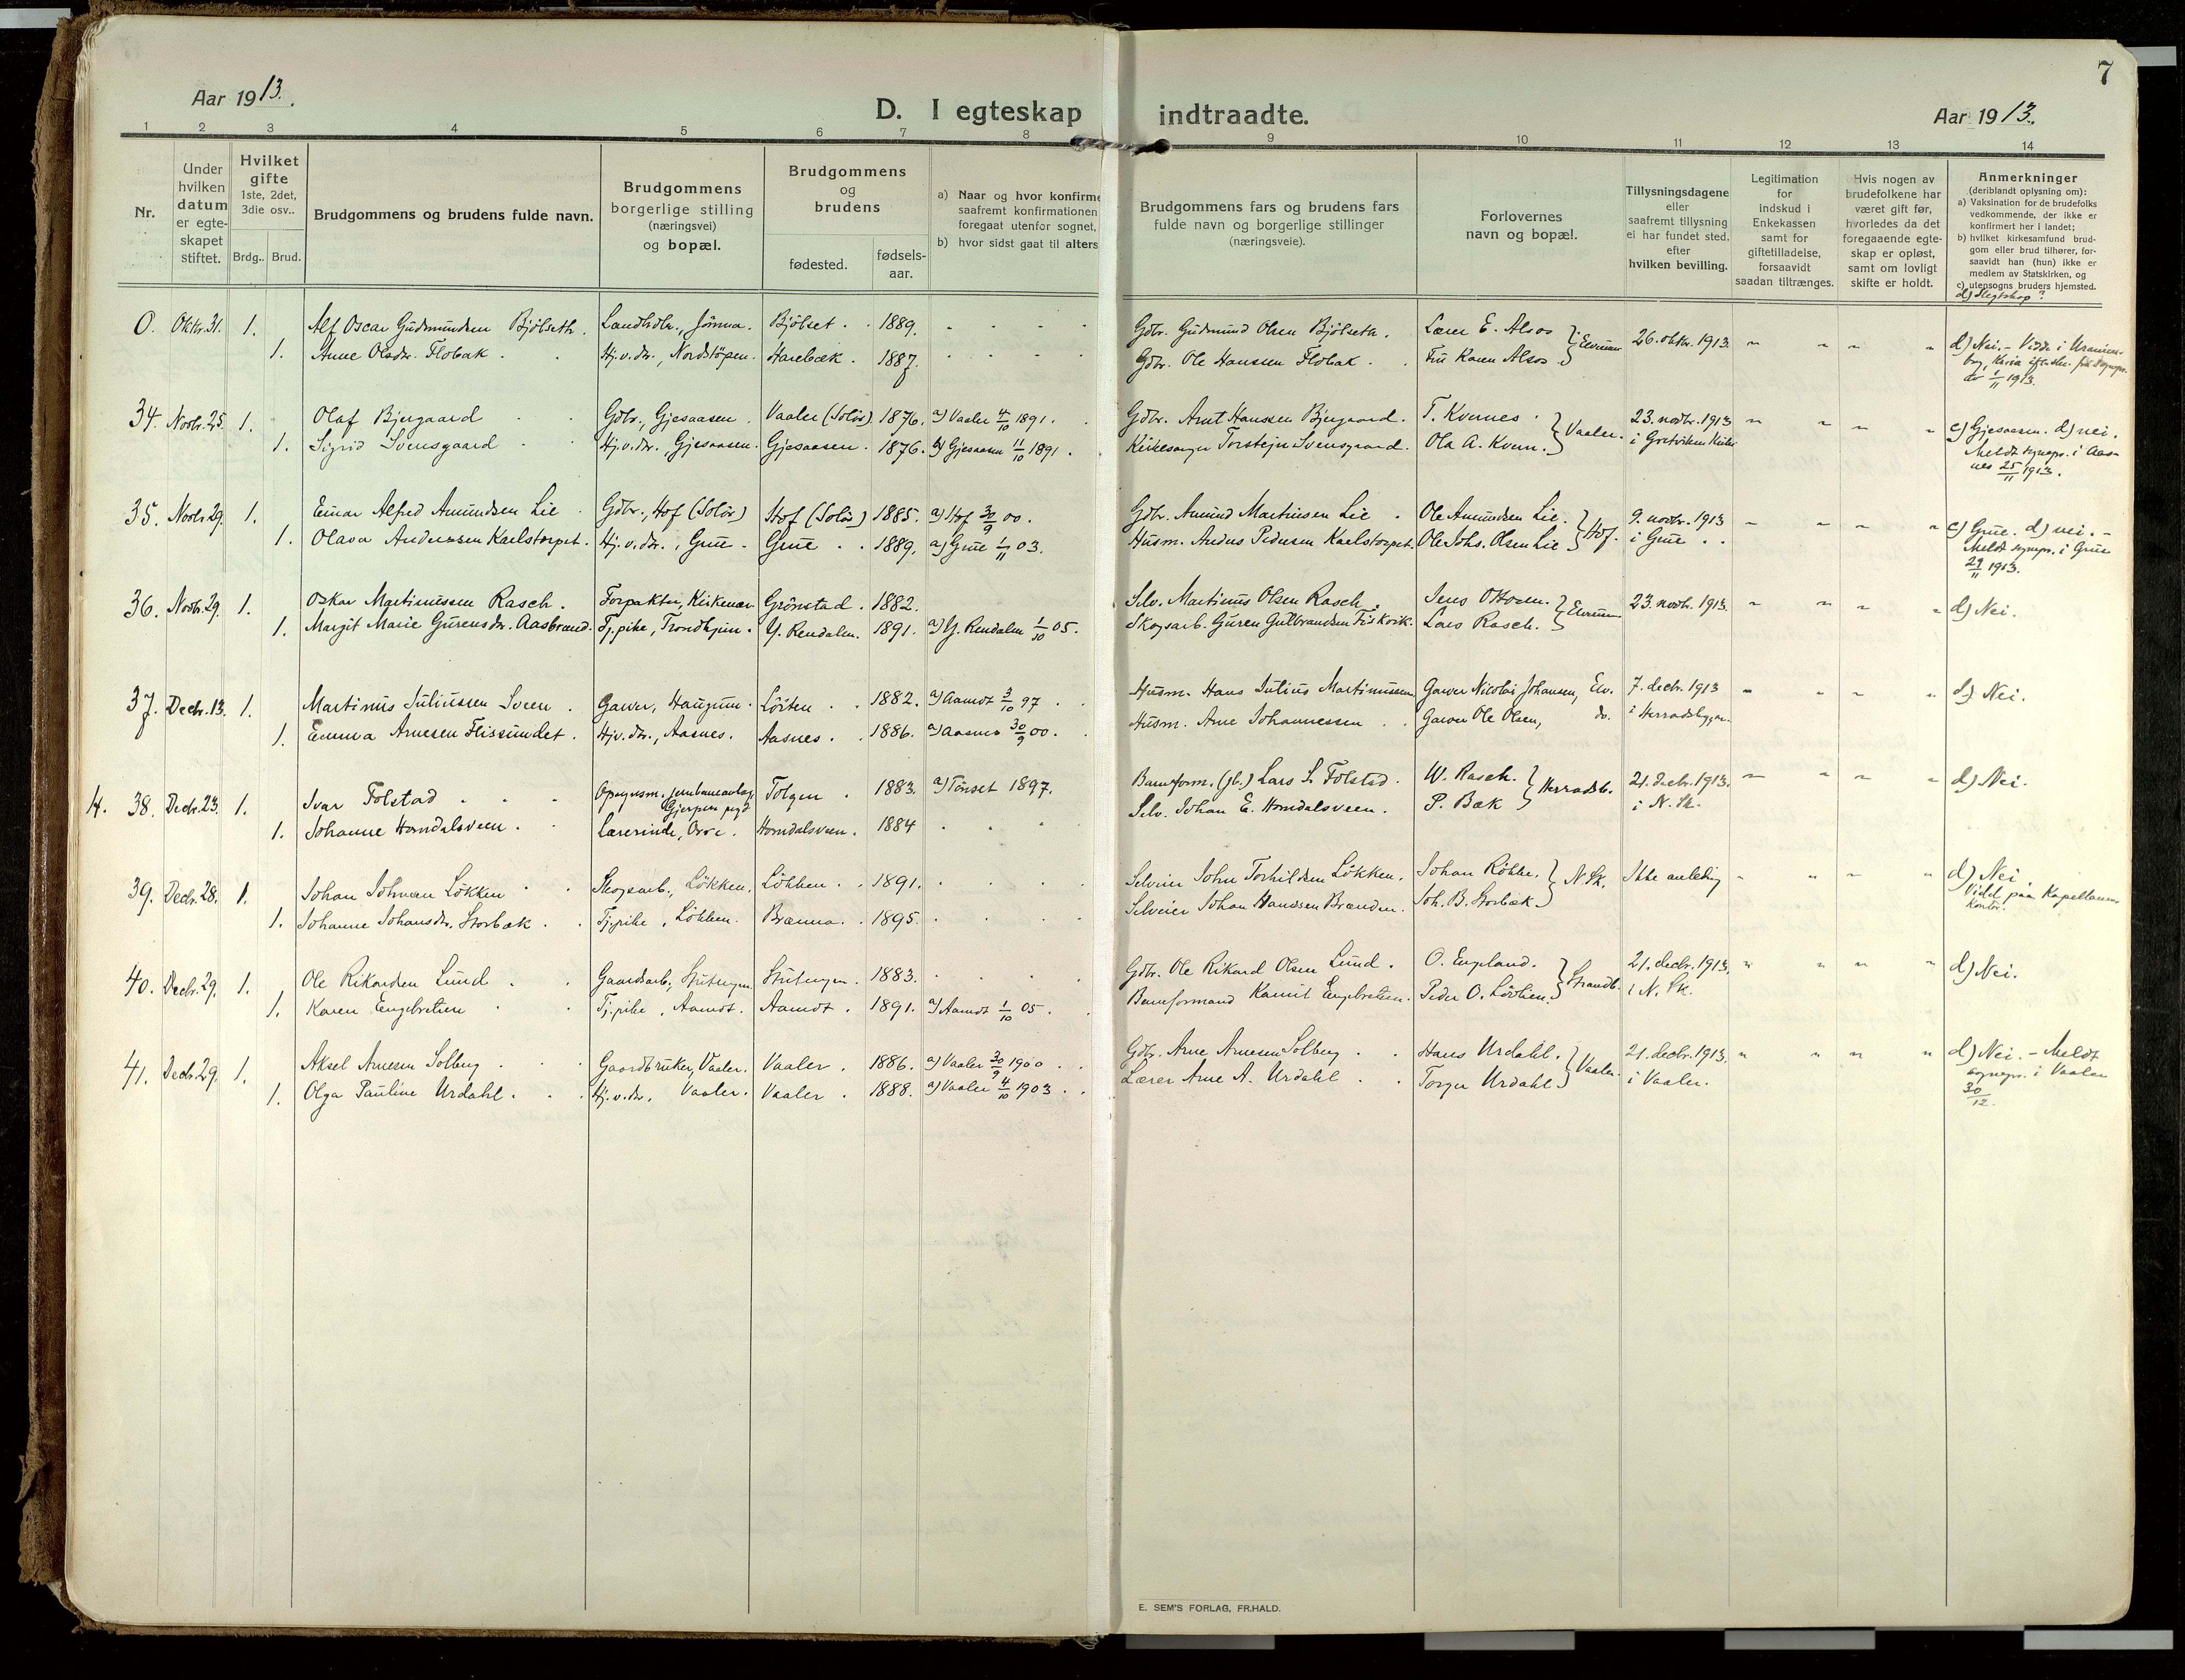 7
Aar 1913.
D. I egteskap indtraadte.
Aar 1913.
1 2 3 4 5 6 7 8 9 10 11 12 13 14
Nr.
Under
hvilken
datum
er egte-
skapet
stiftet.
Hvilket
gifte
1ste, 2det,
3die osv..
Brdg.. Brud.
Brudgommens og brudens fulde navn.
Brudgommens
borgerlige stilling
(næringsvei)
og bopæl.
Brudgommens
og
brudens
fødested.
fødsels-
aar.
a) Naar og hvor konfirme
saafremt konfirmationen
foregaat utenfor sognet,
b) hvor sidst gaat til alters
Brudgommens fars og brudens fars
fulde navn og borgerlige stillinger
(næringsveie).
Forlovernes
navn og bopæl.
Tillysningsdagene
eller
saafremt tillysning
ei har fundet sted,
efter
hvilken bevilling.
Legitimation
for
indskud i
Enkekassen
samt for
giftetilladelse,
forsaavidt
saadan tiltrænges.
Hvis nogen av
brudefolkene har
været gift før,
hvorledes da det
foregaaende egte-
skap er opløst,
samt om lovligt
skifte er holdt.
Anmerkninger
(deriblandt oplysning om):
a) Vaksination for de brudefolks
vedkommende, der ikke er
konfirmert her i landet;
b) hvilket kirkesamfund brud-
gom eller brud tilhører, for-
saavidt han (hun) ikke er
medlem av Statskirken, og
c) utensogns bruders hjemsted.
d) Slegtskap?
0. Oktbr. 31. 1. Alf Oscar Gudmundsen Bjölseth. Landhdlr., Jömna. Bjölset. 1889. Gdbr. Gudmund Olsen Bjölseth. Lærer E. Alsos } Elverum 26. oktbr. 1913. d) Nei. - Viede i Uranien-
1. Anne Olsdtr. Flobak. Hj.v.dtr., Nordstöpen. Harebæk. 1887. Gdbr. Ole Hanssen Flobak. Fru Karen Alsos 1/11 1913.
34. Novbr. 25. 1. Olaf Bjergaard Gdbr., Gjesaasen. Vaaler (Solör) 1876. a) Vaaler 4/10 1891. Gdbr. Arnt Hanssen Bjergaard. T. Kvernes } Vaaler. 23. novbr. 1913 c) Gjesaasen. d) nei.
1. Sigrid Svensgaard Hj.v.dtr., Gjesaasen. Gjesaasen. 1876. a) Gjesaasen 11/10 1891. Kirkesanger Torstejn Svensgaard. Ola A. Kvern. Meldt sognepr. i Aas-
nes 25/11 1913.
35. Novbr. 29. 1. Einar Alfred Amundsen Lie Gdbr., Hof (Solör) Hof (Solör) 1885. a) Hof 30/9 00. Gdbr. Amund Martinsen Lie. Ole Amundsen Lie. } Hof. 9. novbr. 1913 c) Grue. d) nei. -
1. Olava Anderssen Karlstorpet. Hj.v.dtr., Grue. Grue 1889. a) Grue 1/11 03. Husm. Anders Pedersen Karlstorpet. Ole Johs. Olsen Lie i Grue Meldt sognepr. i Grue
29/11 1913.
36. Novbr. 29. 1. Oskar Martinussen Rasch. Forpakter, Kirkenær. Grönstad. 1882. Selv. Martinus Olsen Rasch. Jens Ottosen. } Elverum 23. novbr. 1913. d) Nei.
1. Margit Marie Gurensdtr. Aasbrand. Tj.pike, Trondhjem. Y. Rendalen. 1891. a) Y. Rendalen 1/10 05. Skogsarb. Guren Gulbrandsen Fiskvik. Lars Rasch.
37. Decbr. 13. 1. Martinus Juliussen Sveen. Garver, Haugum. Löiten 1882. a) Aamot 3/10 97 Husm. Hans Julius Martinussen. Garver Nicolai Johansen, Elv. 7. decbr. 1913 d) Nei.
1. Emma Arnesen Flissundet. Hjv.dtr., Aasnes. Aasnes. 1886. a) Aasnes 30/9 00. Husm. Arne Johannessen Garver Ole Olsen, do. i Herradsbygden.
14. 38. Decbr. 23. 1. Ivar Tolstad Opsynsm. jernbaneanlæg, Tolgen 1883. a) Tönset 1897. Baneform. (jb.) Lars L. Tolstad. W. Rasch. } Herradsb. 21. decbr. 1913. d) Nei.
1. Johanne Horndalsveen. Lærerinde, Osen. Horndalsveen. 1884 Selv. Johan E. Horndalsveen. P. Bæk i N. Sk.
39. Decbr. 28. 1. Johan Johnsen Lökken Skogsarb., Lökken. Lökken. 1891. Selveier John Torkildsen Lökken. Johan Rökke. } N. Sk. Ikke anledng d) Nei.
1. Johanne Johansdtr. Storbæk. Tj.pike, Lökken. Brænna. 1895. Selveier Johan Hanssen Brænden. Joh. B. Storbæk. Viet paa Kapellanens
Kontor.
40. Decbr. 29. 1. Ole Rikardsen Lund Gaardsarb., Strutungen. Strutungen. 1883. Gdbr. Ole Rikard Olsen Lund. O. England. } Strandb. 21. decbr. 1913. d) Nei.
1. Karen Engebretsen Tj.pike, Aamot. Aamot. 1891. a) Aamot 1/10 05. Baneformand Kamil Engebretsen. Peder O. Lövlien. i N. Sk.
41. Decbr. 29. 1. Aksel Arnesen Solberg Gaardbruker, Vaaler. Vaaler. 1886. a) Vaaler 30/9 1900 Gdbr. Arne Arnesen Solberg Hans Urdahl. } Vaaler. 21. decbr. 1913. d) Nei. - Meldt
1. Olga Pauline Urdahl. Hj.v.dtr. Vaaler. Vaaler 1888. a) Vaaler 4/10 1903. Lærer Arne A. Urdahl Torger Urdahl i Vaaler. sognepr. i Vaaler
30/12.
E. SEM'S FORLAG, FR.HALD.